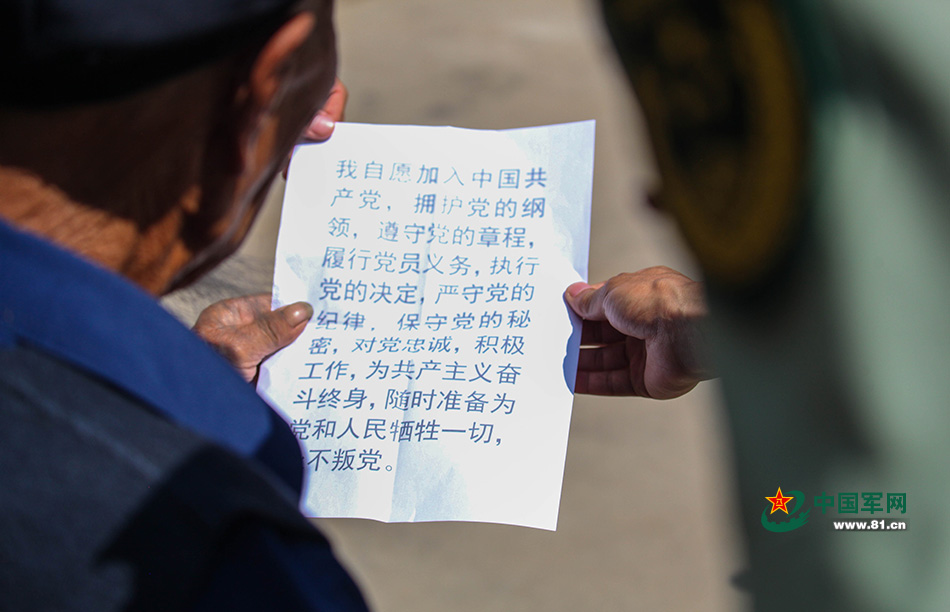 我自愿加入中国共
产党，拥护党的纲
领，遵守党的章程，
履行党员义务，执行
党的决定，严守党的
纪律，保守党的秘
密，对党忠诚，积极
工作，为共产主义奋
斗终身，随时准备为
党和人民牺牲一切，
不叛党。
中国军网
www.81.cn